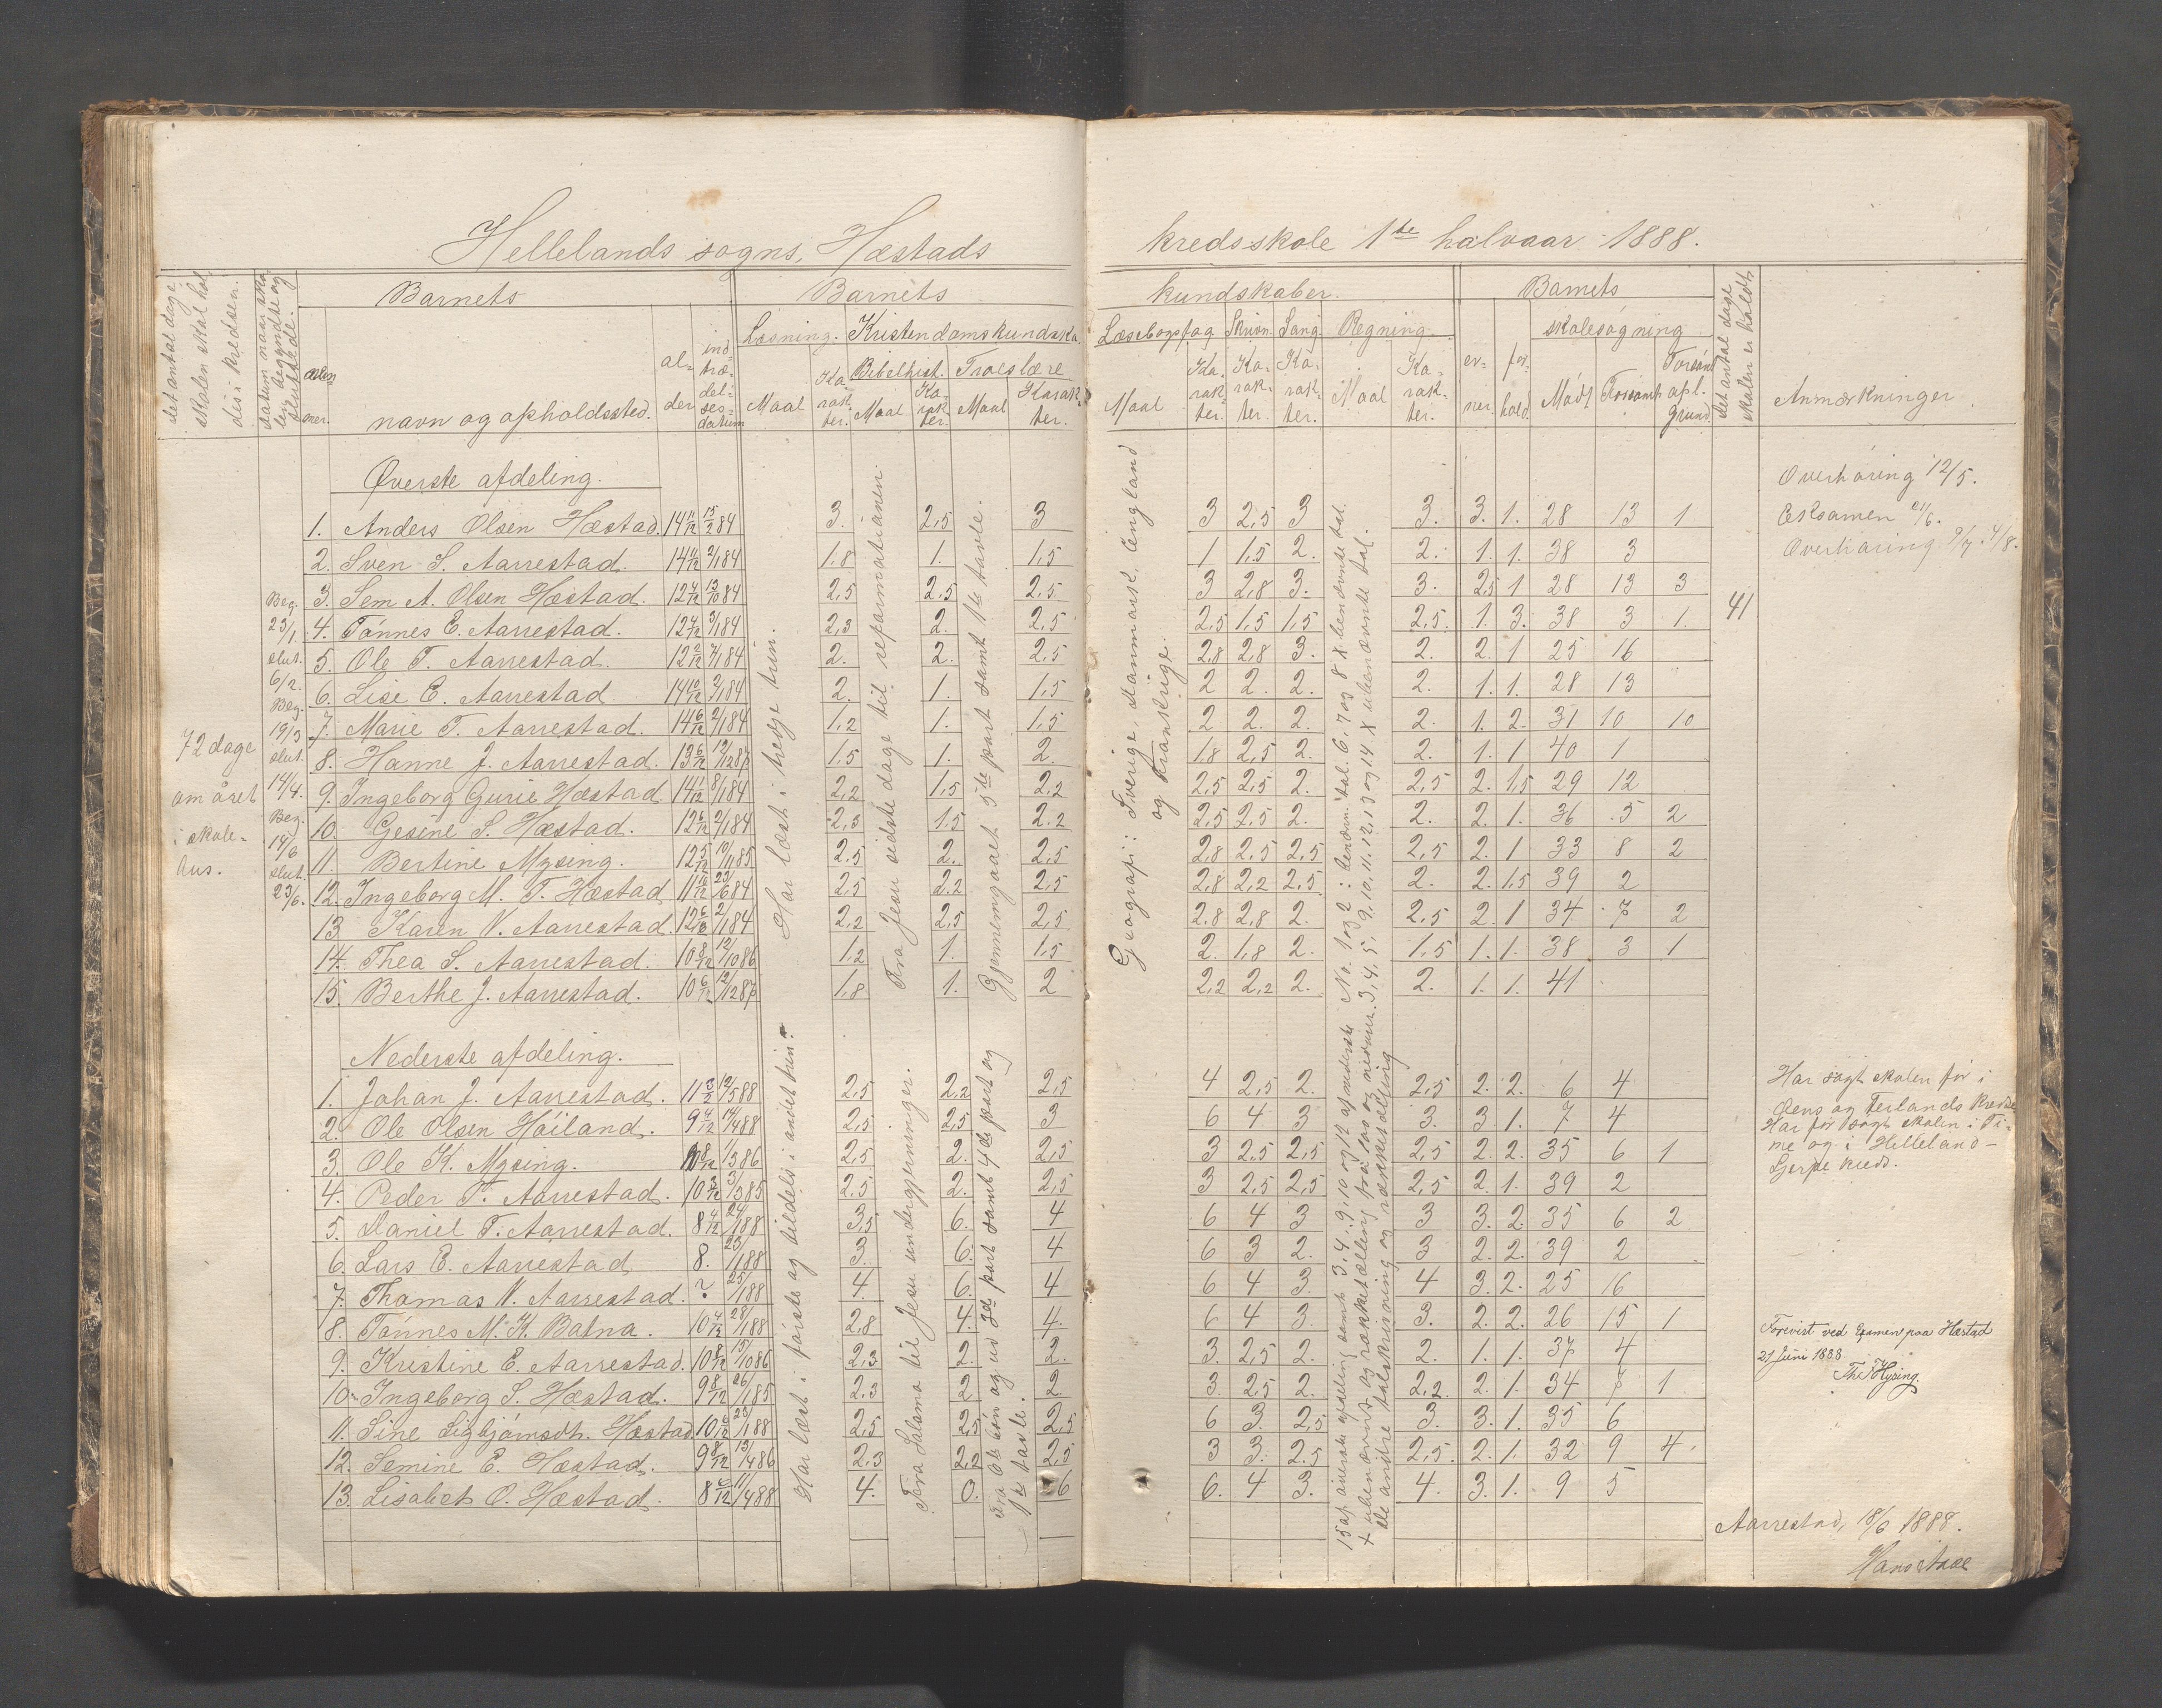 Hellelands sogns, Hæstads kredsskole 1ste halvaar 1888.
Det antal dage skolen skal holdes i kredsen.
Datum naar skolen begyndte og sluttede.
Barnets
navn og opholdssted.
alder
indtrædelsesdatum
Barnets kundskaber.
Læsning. Kristendomskundska. Læsebogsfag Skrivn. Sang. Regning.
Bibelhist. Troeslære
Maal Karakter. Maal Karakter. Maal Karakter.
Maal Karakter. Karakter. Karakter. Maal Karakter.
Barnets
evner. forhold.
skolesøgning
Mødt Forsømt Forsømt af l. grund.
Det antal dage skolen er holdt.
Anmærkninger
72 dage om året i skolehus.
Beg. 23/1. slut. 6/2. Beg. 19/3 slut. 14/4. Beg. 14/6 slut. 23/6.
Øverste afdeling.
1. Anders Olsen Hæstad. 14 11/12 15/2 84 3. 2,5 3 3 2,5 3 3. 3. 1. 28 13 1
2. Sven S. Aarrestad. 14 4/12 2/1 84 1,8 1. 1,5 1 1,5 2. 2. 1. 1. 38 3
3. Sem A. Olsen Hæstad. 12 4/12 13/10 84 2,5 2,5 2,5 3 2,8 3. 3. 2,5 1 28 13 3
4. Tønnes E. Aarrestad. 12 4/12 3/1 84 2,3 2. 2,5 2,5 1,5 1,5 2,5. 1. 3. 38 3 1.
5. Ole T. Aarrestad. 12 2/12 7/1 84 2. 2. 2,5 2,8 2,8 3. 2. 2. 1 25 16
6. Lise E. Aarrestad 14 10/12 2/1 84 2. 1. 1,5 2 2. 2. 2. 1. 1. 28 13
7. Marie T. Aarrestad. 14 6/12 2/1 84 1,2 1. 1,5 2 2. 2. 2. 1. 2. 31 10 10
8. Hanne J. Aarrestad. 13 6/12 12/12 87 1,5 1. 2. 1,8 2,5 2. 2. 1. 1 40 1
9. Ingeborg Gurie Hæstad 14 1/12 8/1 84 2,2 1,5 2,2 2,5 2,5 2. 2,5 2. 1,5 29 12
10. Gesine S. Hæstad. 12 6/12 2/1 84 2,3 1,5 2,2 2,5 2,5 2. 2. 2. 1. 36 5 2
11. Bertine Mysing. 12 5/12 10/11 85 2,5 2. 2,5 2,8 2,5 2,5 2,5 2. 1 33 8 2
12. Ingeborg M. T. Hæstad 11 10/12 23/6 84 2,5 2,2 2,5 2,8 2,2 2,5 2. 2. 1,5 39 2
13 Karen V. Aarrestad. 12 6/12 2/1 84 2,2 2,5 2,5 2,8 2,8 2. 2,5 2. 1 34 7 2
14. Thea S. Aarrestad. 10 8/12 12/10 86 1,2 1. 1,5 2. 1,8 2. 1,5 1. 1. 38 3 1
15. Berthe J. Aarrestad. 10 6/12 12/12 87 1,8 1. 2 2,2 2,2 2. 2. 1. 1. 41
Har læst i tredje trin.
Fra Jesu sidste dage til reformationen
Gjennemgaaet 5te part samt 1ste tavle.
Geografi: Sverige, Danmark, England og Frankrige.
41
Overhøring 12/5.
Eksamen 21/6.
Overhøring 9/7. 4/8.
Nederste afdeling.
1. Johan J. Aarrestad. 11 3/12 12/5 88 2,5 2,2 2,5 4 2,5 2. 2,5 2. 2. 6 4
2. Ole Olsen Høiland. 9 4/12 14/4 88 2,5. 2,5. 3 6 4 3 3. 3 1. 7 4
3. Ole K. Mysing. 10 8/12 1/3 86 2,5 2. 2,5 3 2,5 2,5 2,5 2. 2. 35 6 1
4. Peder T. Aarrestad. 10 3/12 3/3 85 2,5 2. 2,5 3 2,5 2,5 2,5 2. 1. 39 2
5. Daniel T. Aarrestad. 8 4/12 24/1 88 3,5 6. 4 6 4 3 3 3. 2. 35 6 2
6. Lars E. Aarrestad 8. 23/1 88 3. 6. 4 6 3 2. 3 2. 2. 39 2
7. Thomas V. Aarrestad. ? 25/1 88 4. 6. 4 6 4 3. 4 3. 2. 25 16
8. Tønnes M. K. Batna. 10 4/12 28/1 88 2,8 4. 4. 6 4 3. 3. 2. 2. 26 15 1
9. Kristine E. Aarrestad. 10 8/12 15/10 86 2,3 2. 2. 3. 2,5 2. 2. 1. 1. 37 4
10. Ingeborg S. Hæstad. 9 8/12 26/1 85 2,3 2 2 3. 2,5 2. 2,2. 2. 1. 34 7 1
11. Sine Sigbjørnsdt. Hæstad. 10 6/12 23/1 88 2,5 2,5 2,5 6 3. 2,5 3. 3. 1. 35 6
12. Semine E. Hæstad. 9 8/12 13/4 86 2,3 2,2 2,5 3 3. 2,5 2,5. 2. 1. 32 9 4
13. Lisabet O. Hæstad. 8 6/12 11/4 88 4. 0. 6 6. 4 3. 4. 3. 1. 9 5
Har læst i første og tildels i andet trin.
Fra Salomo til Jesu undergjerninger.
Fra 6te bøn og ud 3de part samt 4de part og 1ste tavle.
Har søgt skolen før i
Øens og Terlands kredse
Har før søgt skolen i Time og i Helleland-
Gjerpe kreds.
Forevist ved Examen paa Hæstad
21 Juni 1888
Th. Hysing.
Aarrestad, 18/6 1888.
Hans Aase